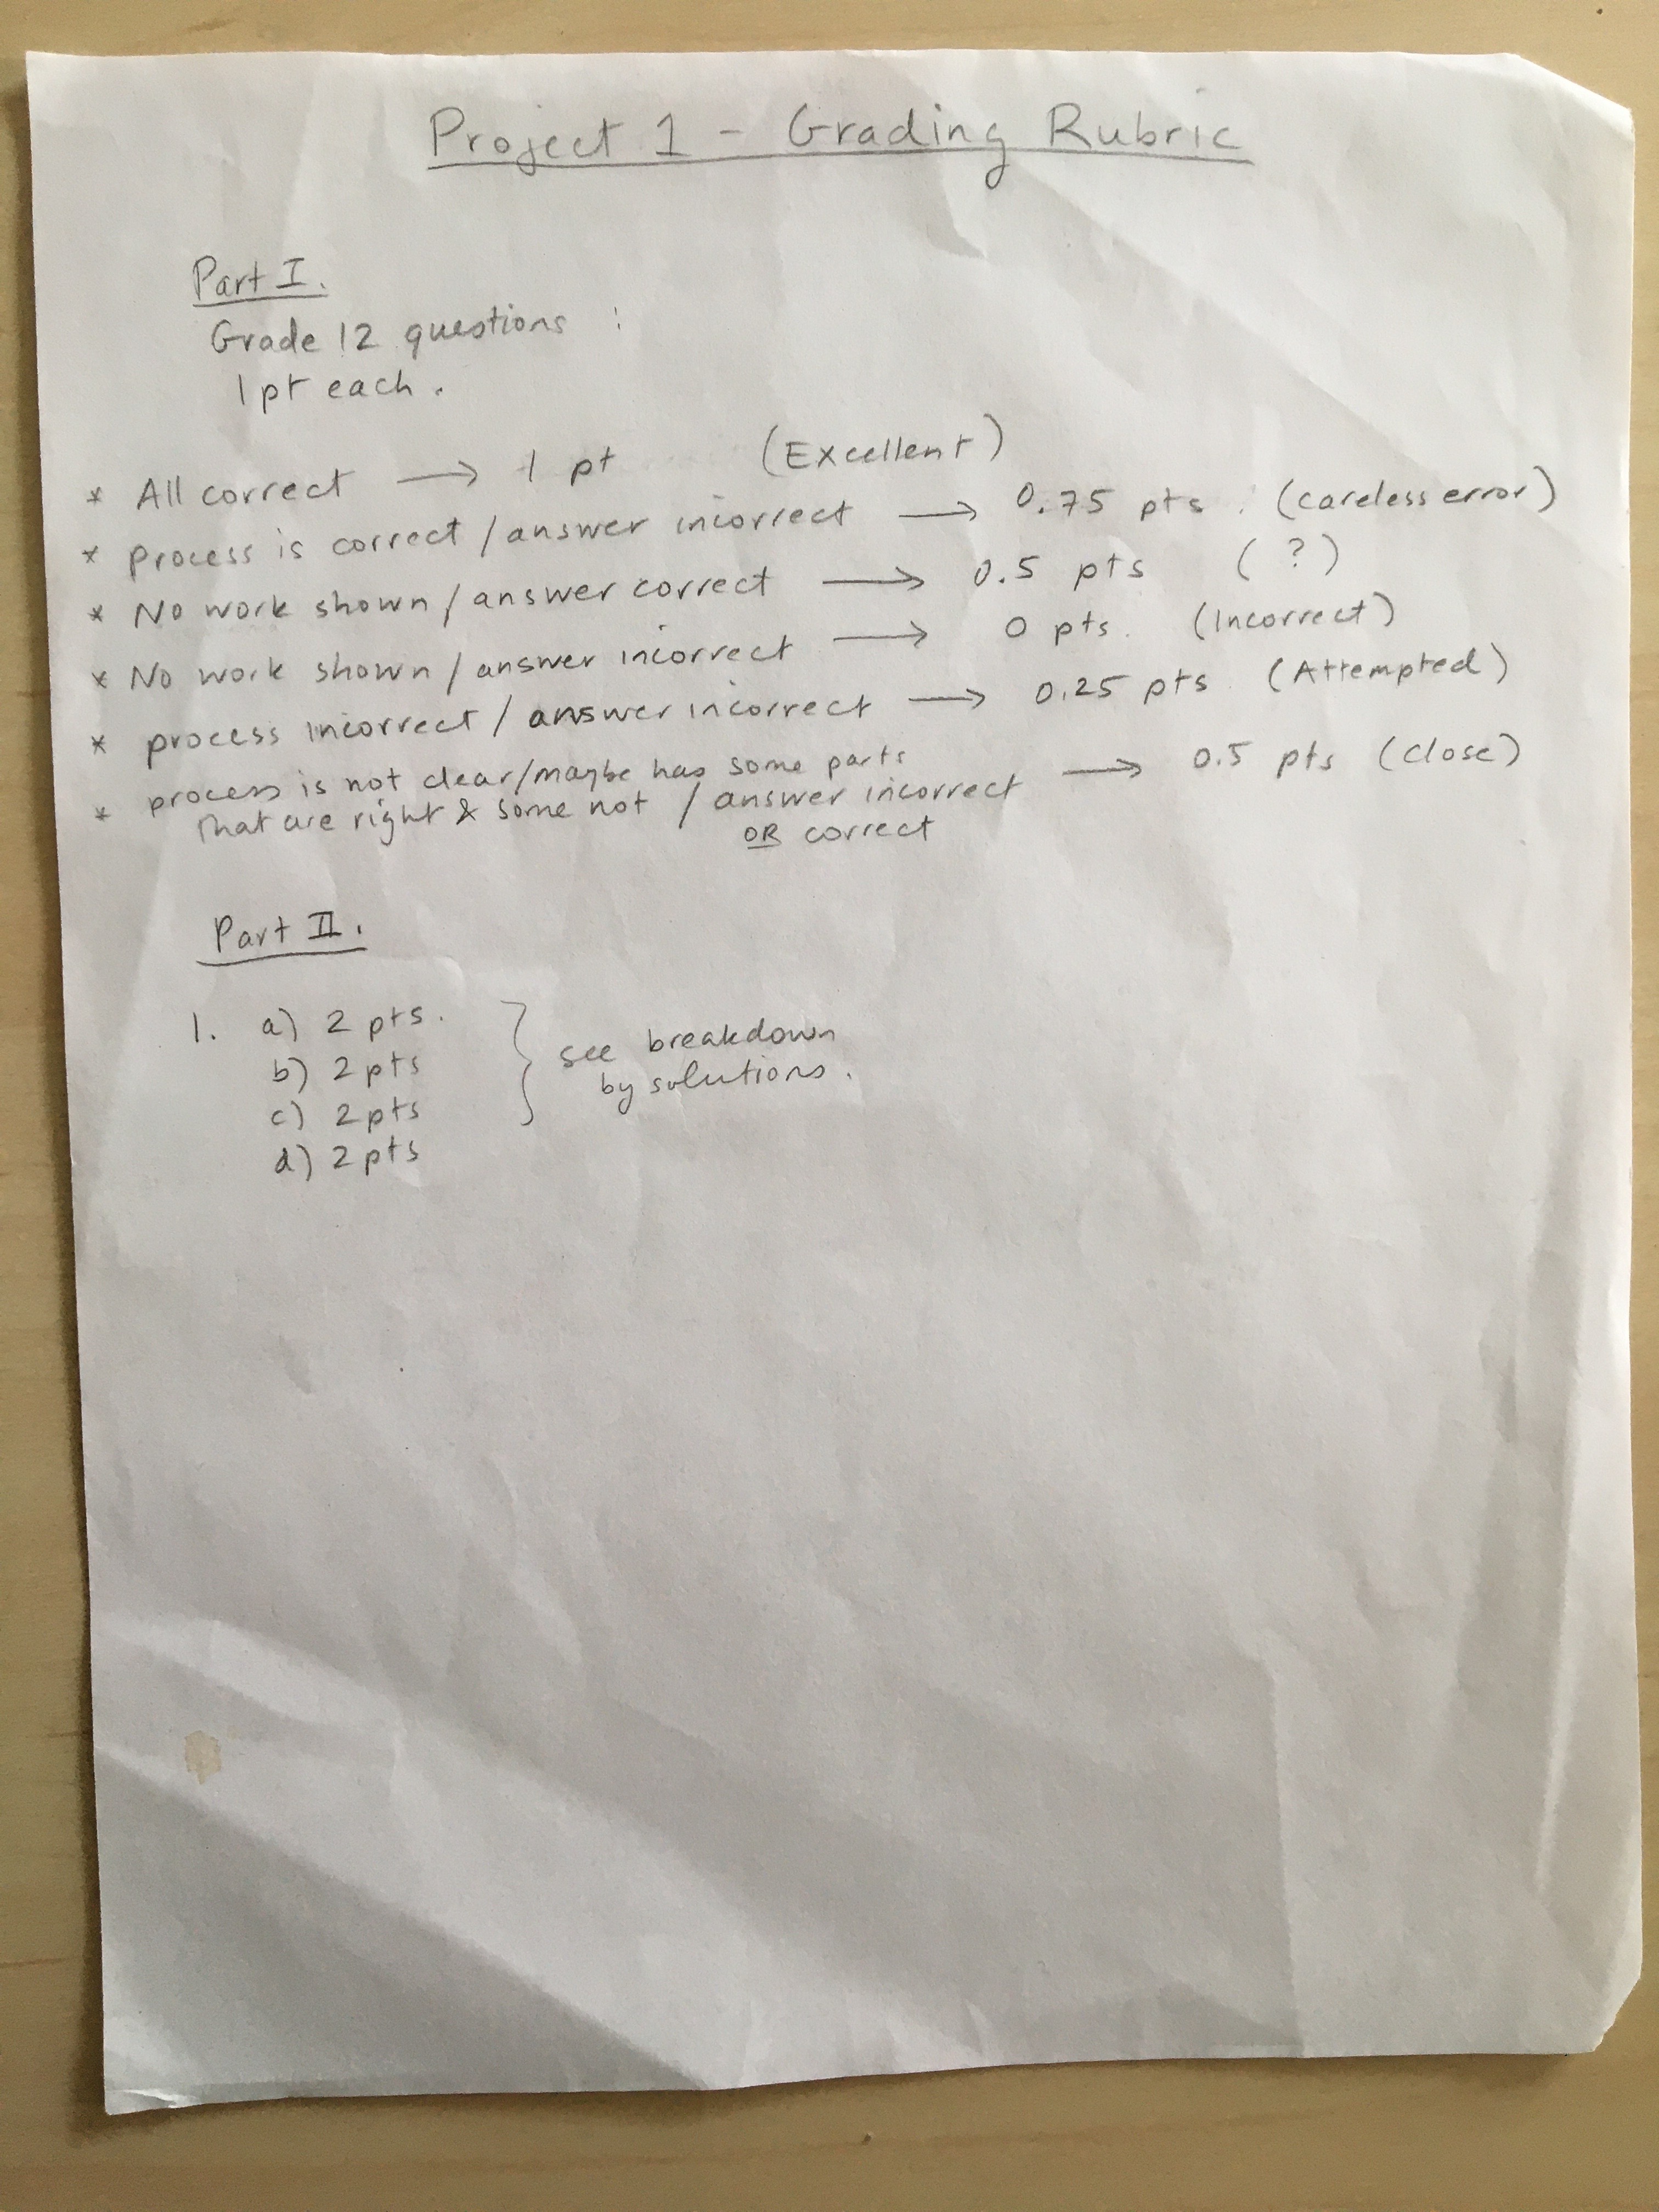 Project 1 - Grading Rubric
Part I.
Grade 12 questions :
1 pt each.
* All correct → 1 pt (Excellent)
* process is correct / answer incorrect → 0.75 pts. (careless error)
* No work shown / answer correct → 0.5 pts (?)
* No work shown / answer incorrect → 0 pts. (Incorrect)
* process incorrect / answer incorrect → 0.25 pts (Attempted)
* process is not clear/maybe has some parts
that are right & some not / answer incorrect → 0.5 pts (close)
OR correct
Part II.
1. a) 2 pts. } see breakdown
b) 2 pts by solutions.
c) 2 pts
d) 2 pts